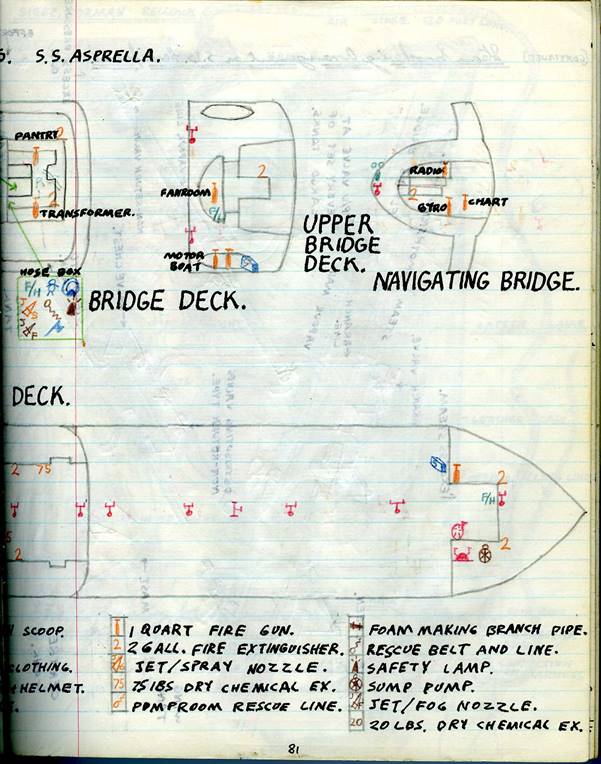 S.S. ASPRELLA.
PANTRY
TRANSFORMER.
HOSE BOX
F/H
BRIDGE DECK.
FANROOM
F/H
2
MOTOR
BOAT
UPPER
BRIDGE
DECK.
RADIO
2
GYRO
CHART
NAVIGATING BRIDGE.
DECK.
2 75
2
2
F/H
2
SCOOP.
CLOTHING.
HELMET.
1 QUART FIRE GUN.
2 2 GALL. FIRE EXTINGUISHER.
JET/SPRAY NOZZLE.
75 75 IBS DRY CHEMICAL EX.
PUMPROOM RESCUE LINE.
FOAM MAKING BRANCH PIPE.
RESCUE BELT AND LINE.
SAFETY LAMP.
SUMP PUMP.
JET/FOG NOZZLE.
20 20 LBS. DRY CHEMICAL EX.
81